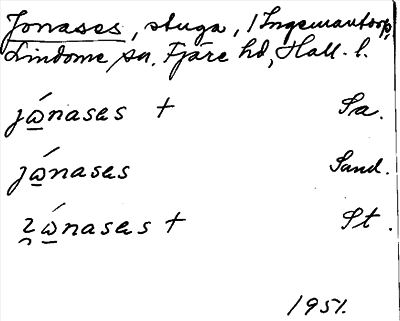 Jonases, stuga, i Ingemantorp,
Lindome sn, Fjäre hd, Hall. l.
jώnasas + Sa.
jώnasas Sand.
ώnasas + St.
1951.